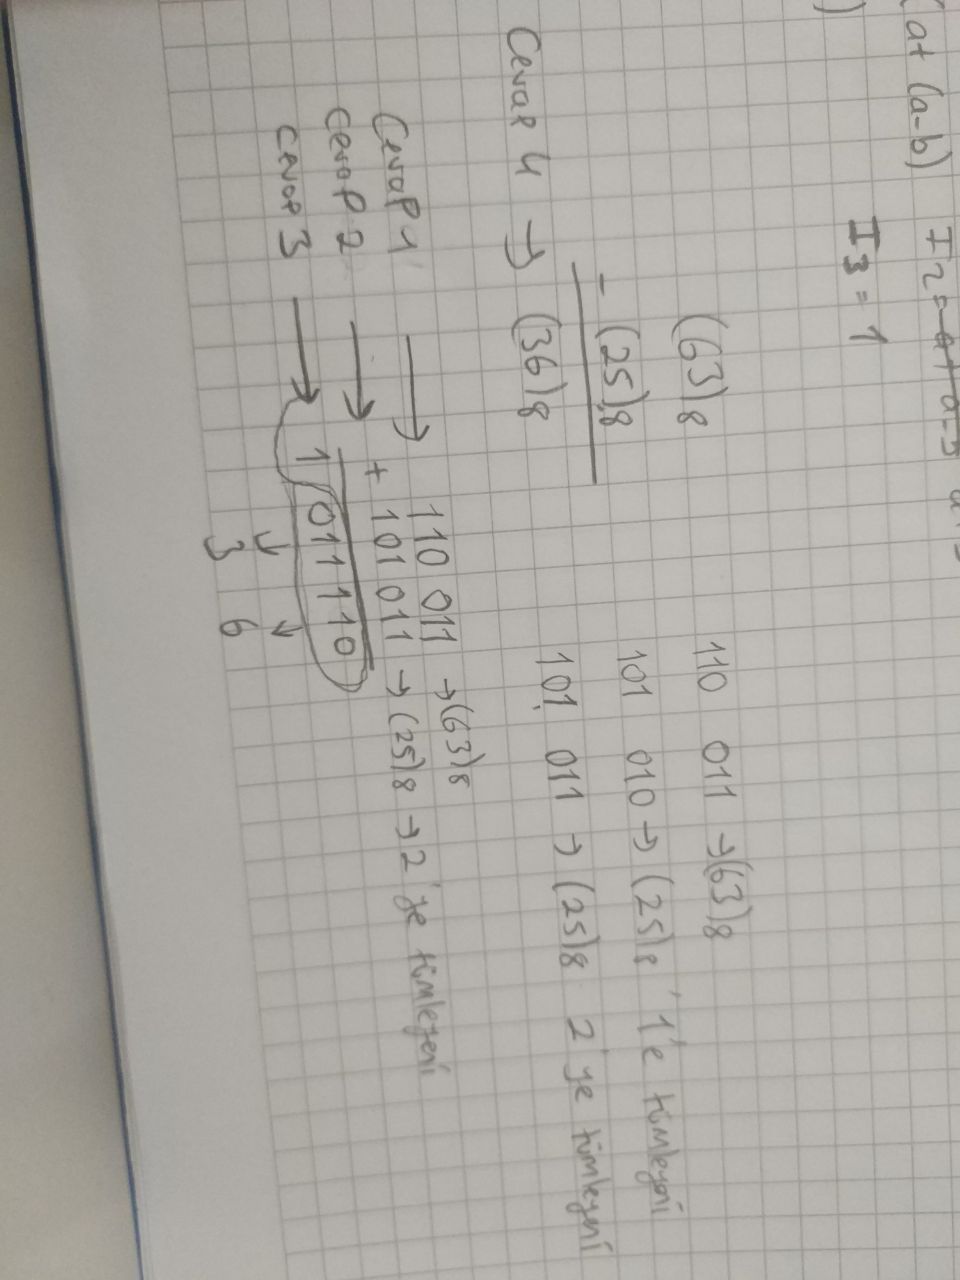 (a+ (a-b)
I2=
)
I3 = 1
(63)8
110 011 →(63)8
- (25)8
101 010 → (25)8 '1'e tümleyeni
Cevap 4 → (36)8
101 011 → (25)8 2'ye tümleyeni
Cevap 1 → 110 011 →(63)8
Cevap 2 → + 101 011 → (25)8 → 2'ye tümleyeni
Cevap 3 → 1 011 110
↓ ↓
3 6